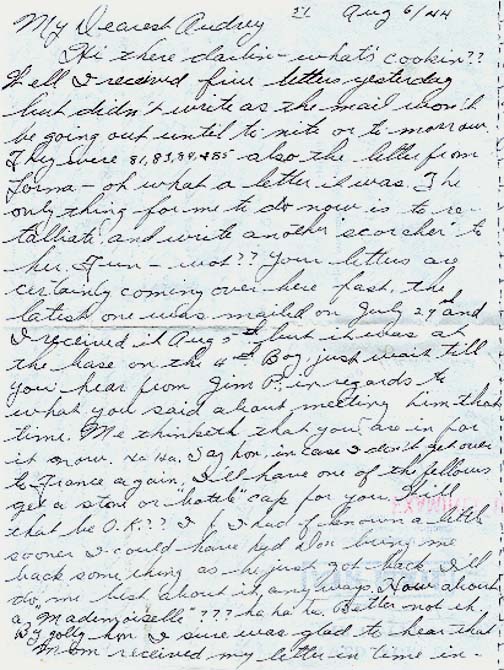 My Dearest Audrey 21 Aug 6/44
Hi there darlin - what's cookin??
Well I received five letters yesterday
but didn't write as the mail won't
be going out until to-nite or to-morrow.
They were 81, 83, 84, + 85 also the letter from
Lorna - oh what a letter it was. The
only thing for me to do now is to re-
talliate and write another "scorcher" to
her. Fun - wot?? Your letters are
certainly coming over here fast, the
latest one was mailed on July 29th and
I received it Aug 5th but it was at
the base on the 4th. Boy, just wait till
you hear from Jim P. in regards to
what you said about meeting him that
time. Me thinketh that you are in for
it now. Ha Ha. Say hon, in case I don't get over
to France again, I'll have one of the fellows
get a stone or "bottle" cap for you. Will
that be O.K.?? If I had of known a little
sooner I could have had Don bring me
back something as he just got back. I'll
do me best about it, anyways. How about
a "Mademoiselle"??? ha ha ha. Better not eh
By golly hon I sure was glad to hear that
Mom received my letter in time in-
EXAMINE